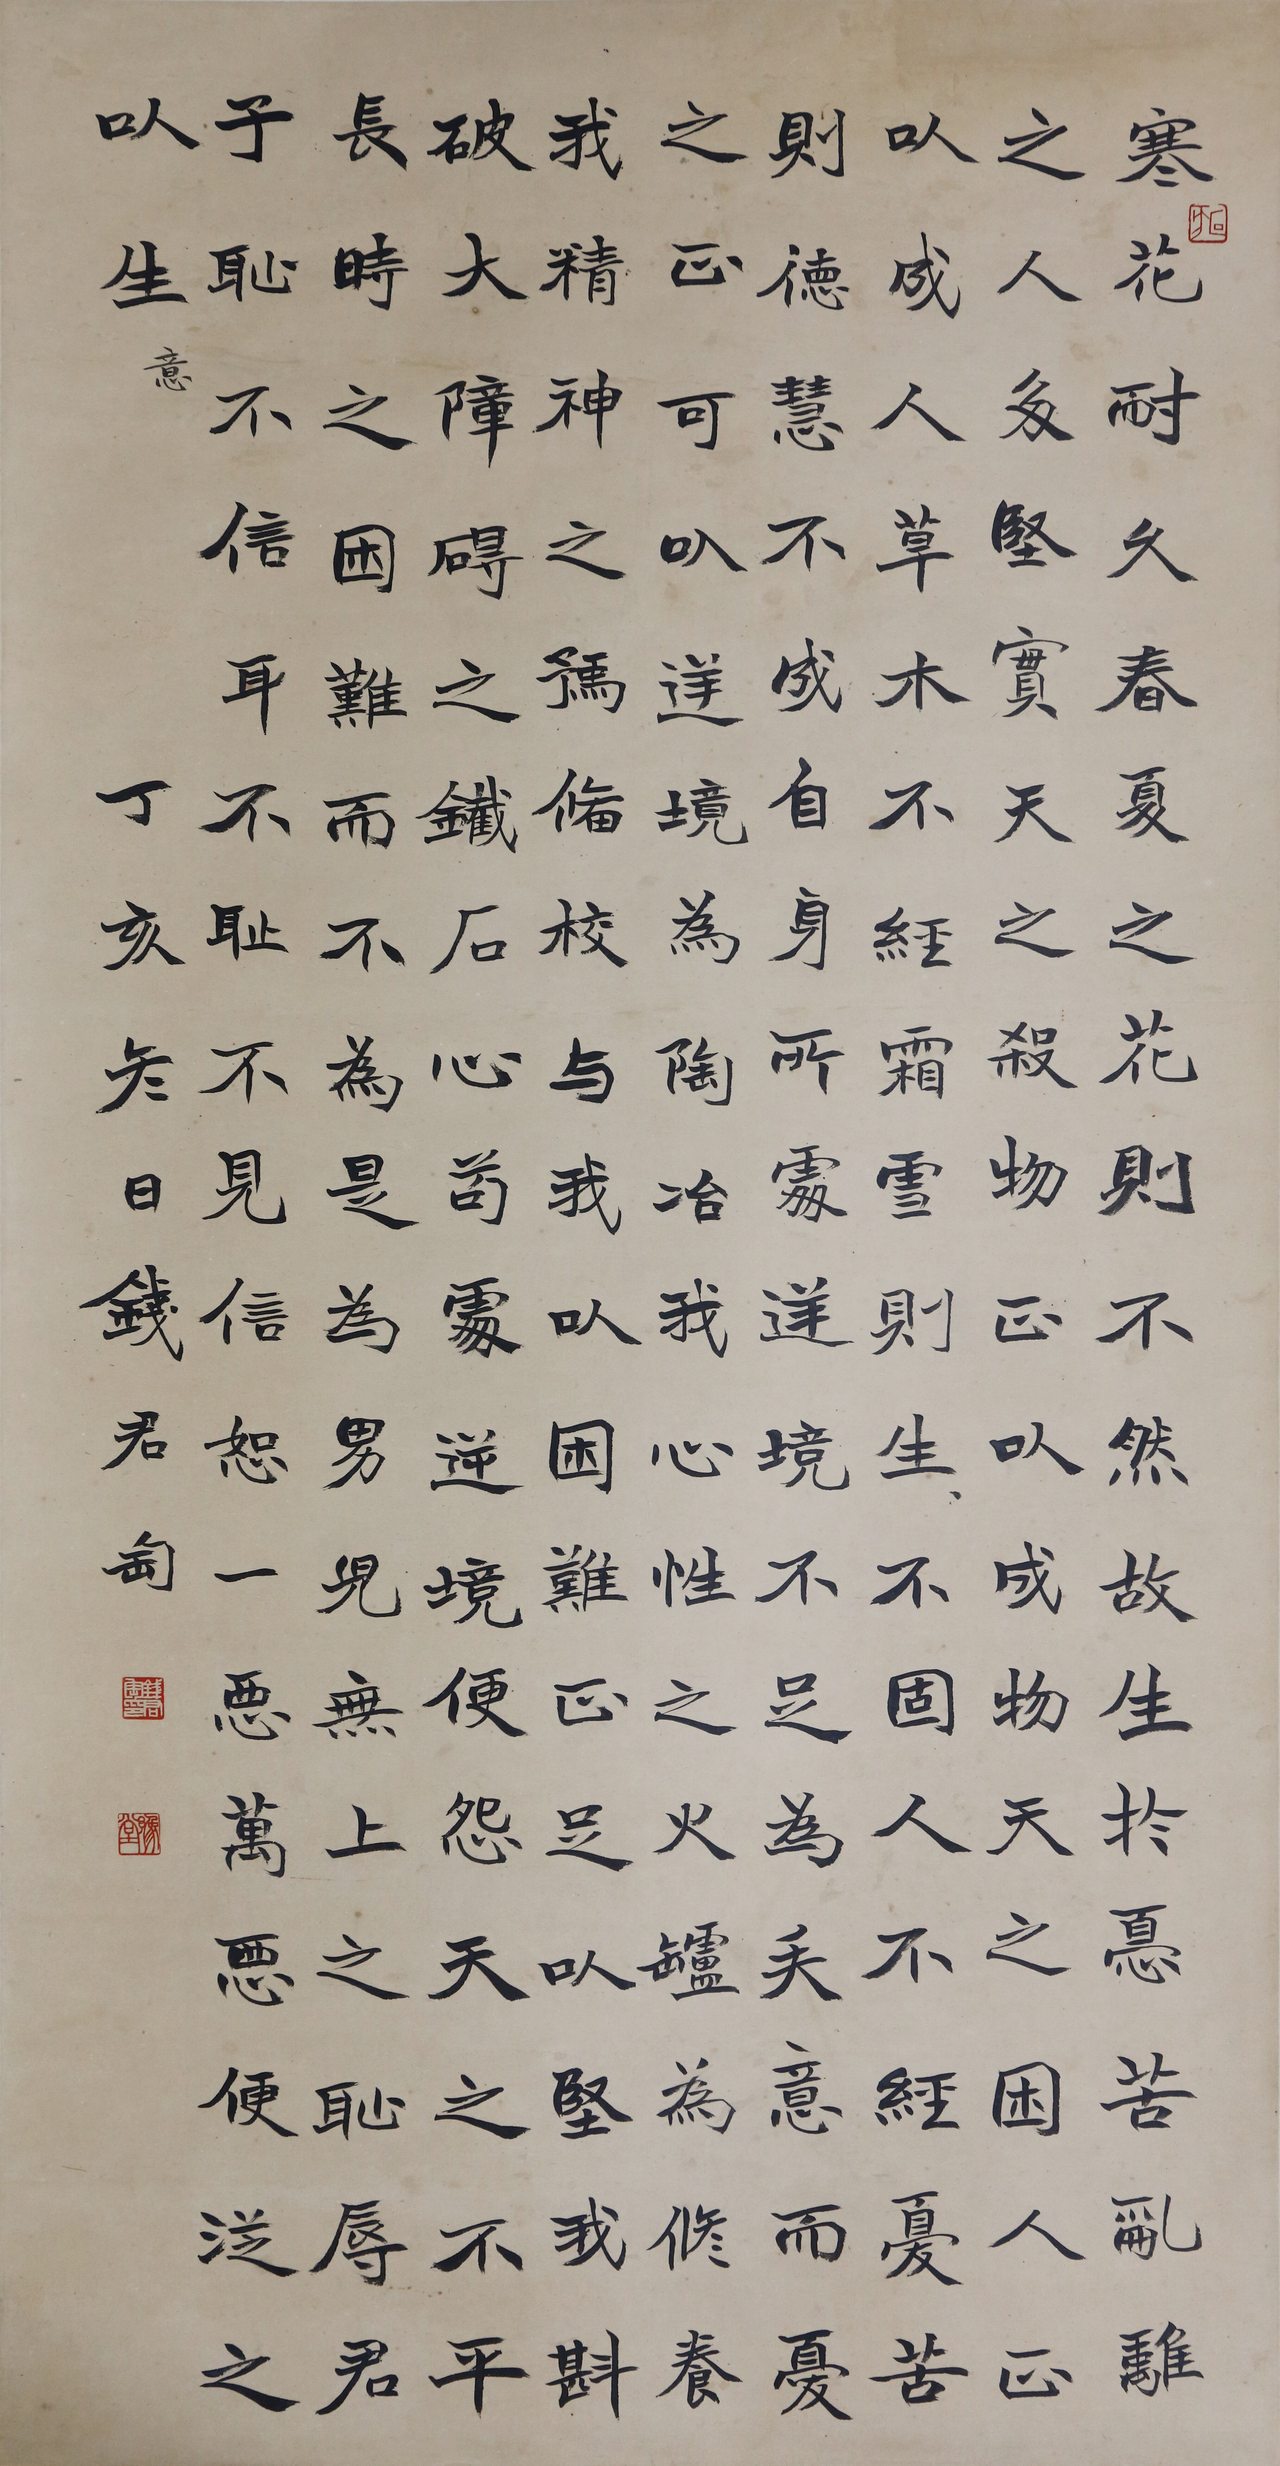 寒花耐久春夏之花則不然故生於憂苦亂離
之人多堅實天之殺物正以成物天之困人正
以成人草木不經霜雪則生不固人不經憂苦
則德慧不成自身所處逆境不足為失意而憂
之正可以逆境為陶冶我心性之火罏為修養
我精神之預備校与我以困難正足以堅我斟
破大障碍之鐵石心苟處逆境便怨天之不平
長時之困難而不為是為男兒無上之恥辱君
子恥不信耳不恥不見信恕一惡萬惡便從之
以生 意
丁亥冬日錢君匋